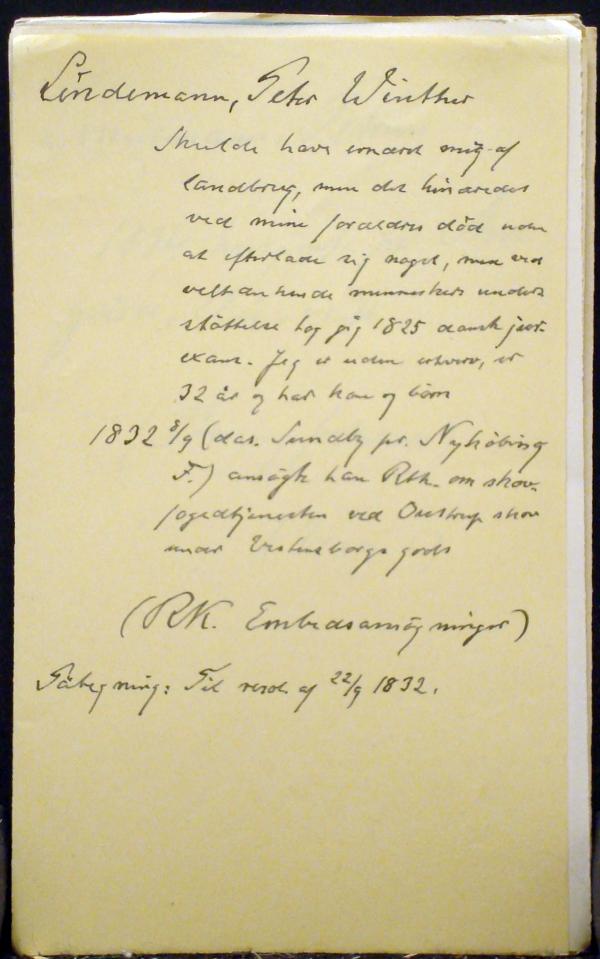 Lindemann, Peter Winther
Skulde have ernæret mig af
landbrug, men det hindredes
ved mine forældres död uden
at efterlade sig noget, men ved
veltænkende menneskers under-
stöttelse tog jeg 1825 dansk jur.
exam. Jeg er uden erhverv, er
32 år og har kone og börn
1832 8/9 (dat. Sundby pr. Nyköbing
F.) ansögte han Rtk. om skov-
fogedtjenesten ved Oustrup skov
under Vestensborgs gods
(RK. Embedsansögninger)
Påtegning: Til resol. af 22/9 1832.